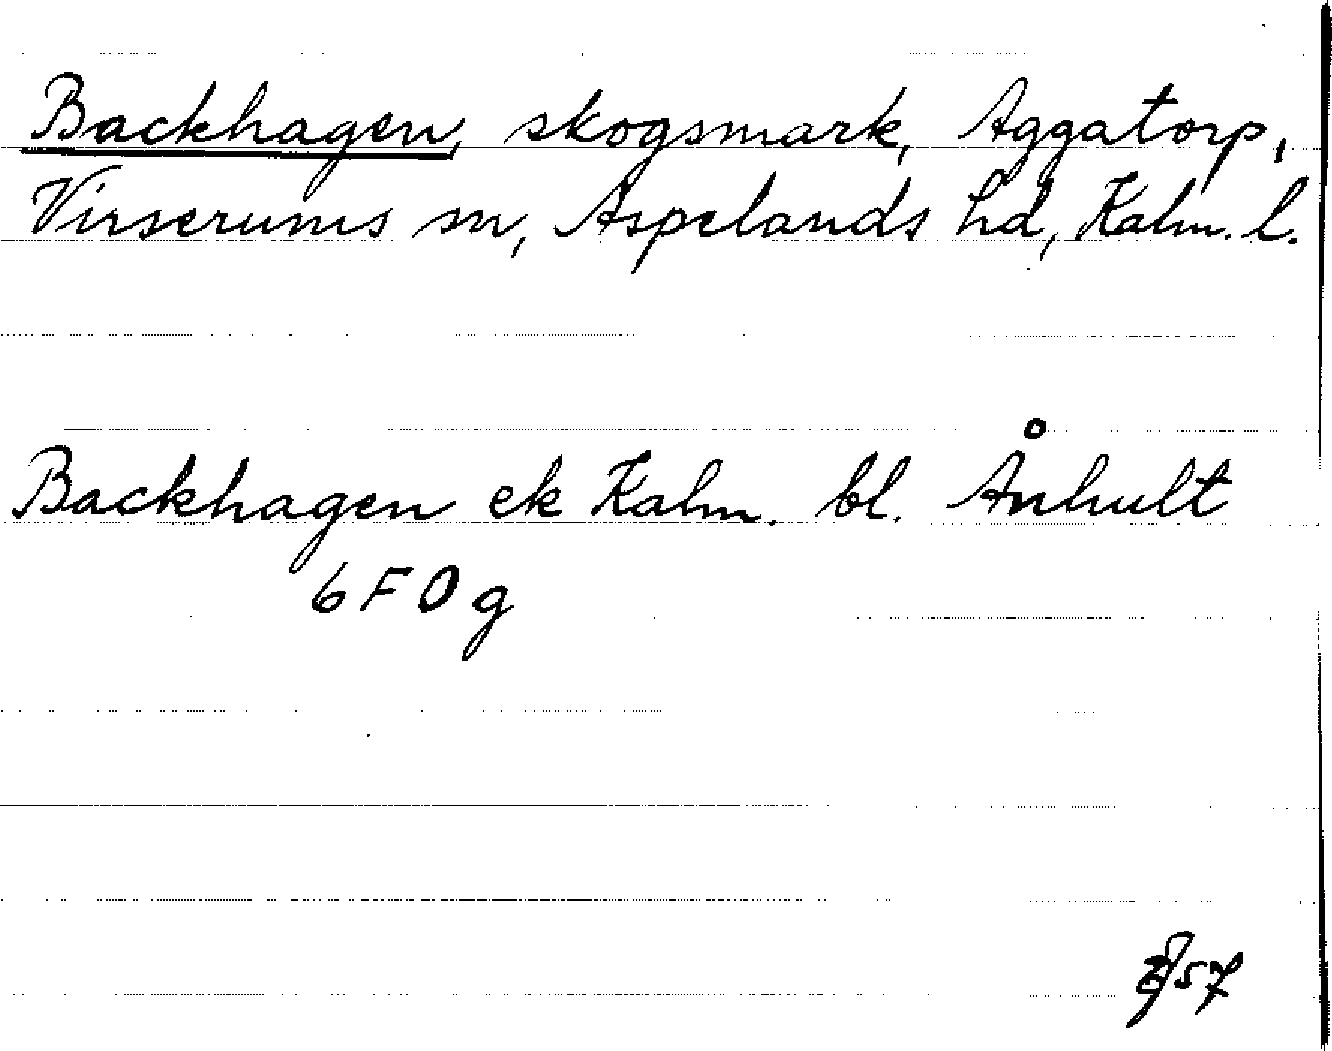 Backhagen, skogsmark, Aggatorp,
Virserums sn, Aspelands hd, Kalm. l.
Backhagen ek Kalm. bl. Ånhult
6 F 0 g
57